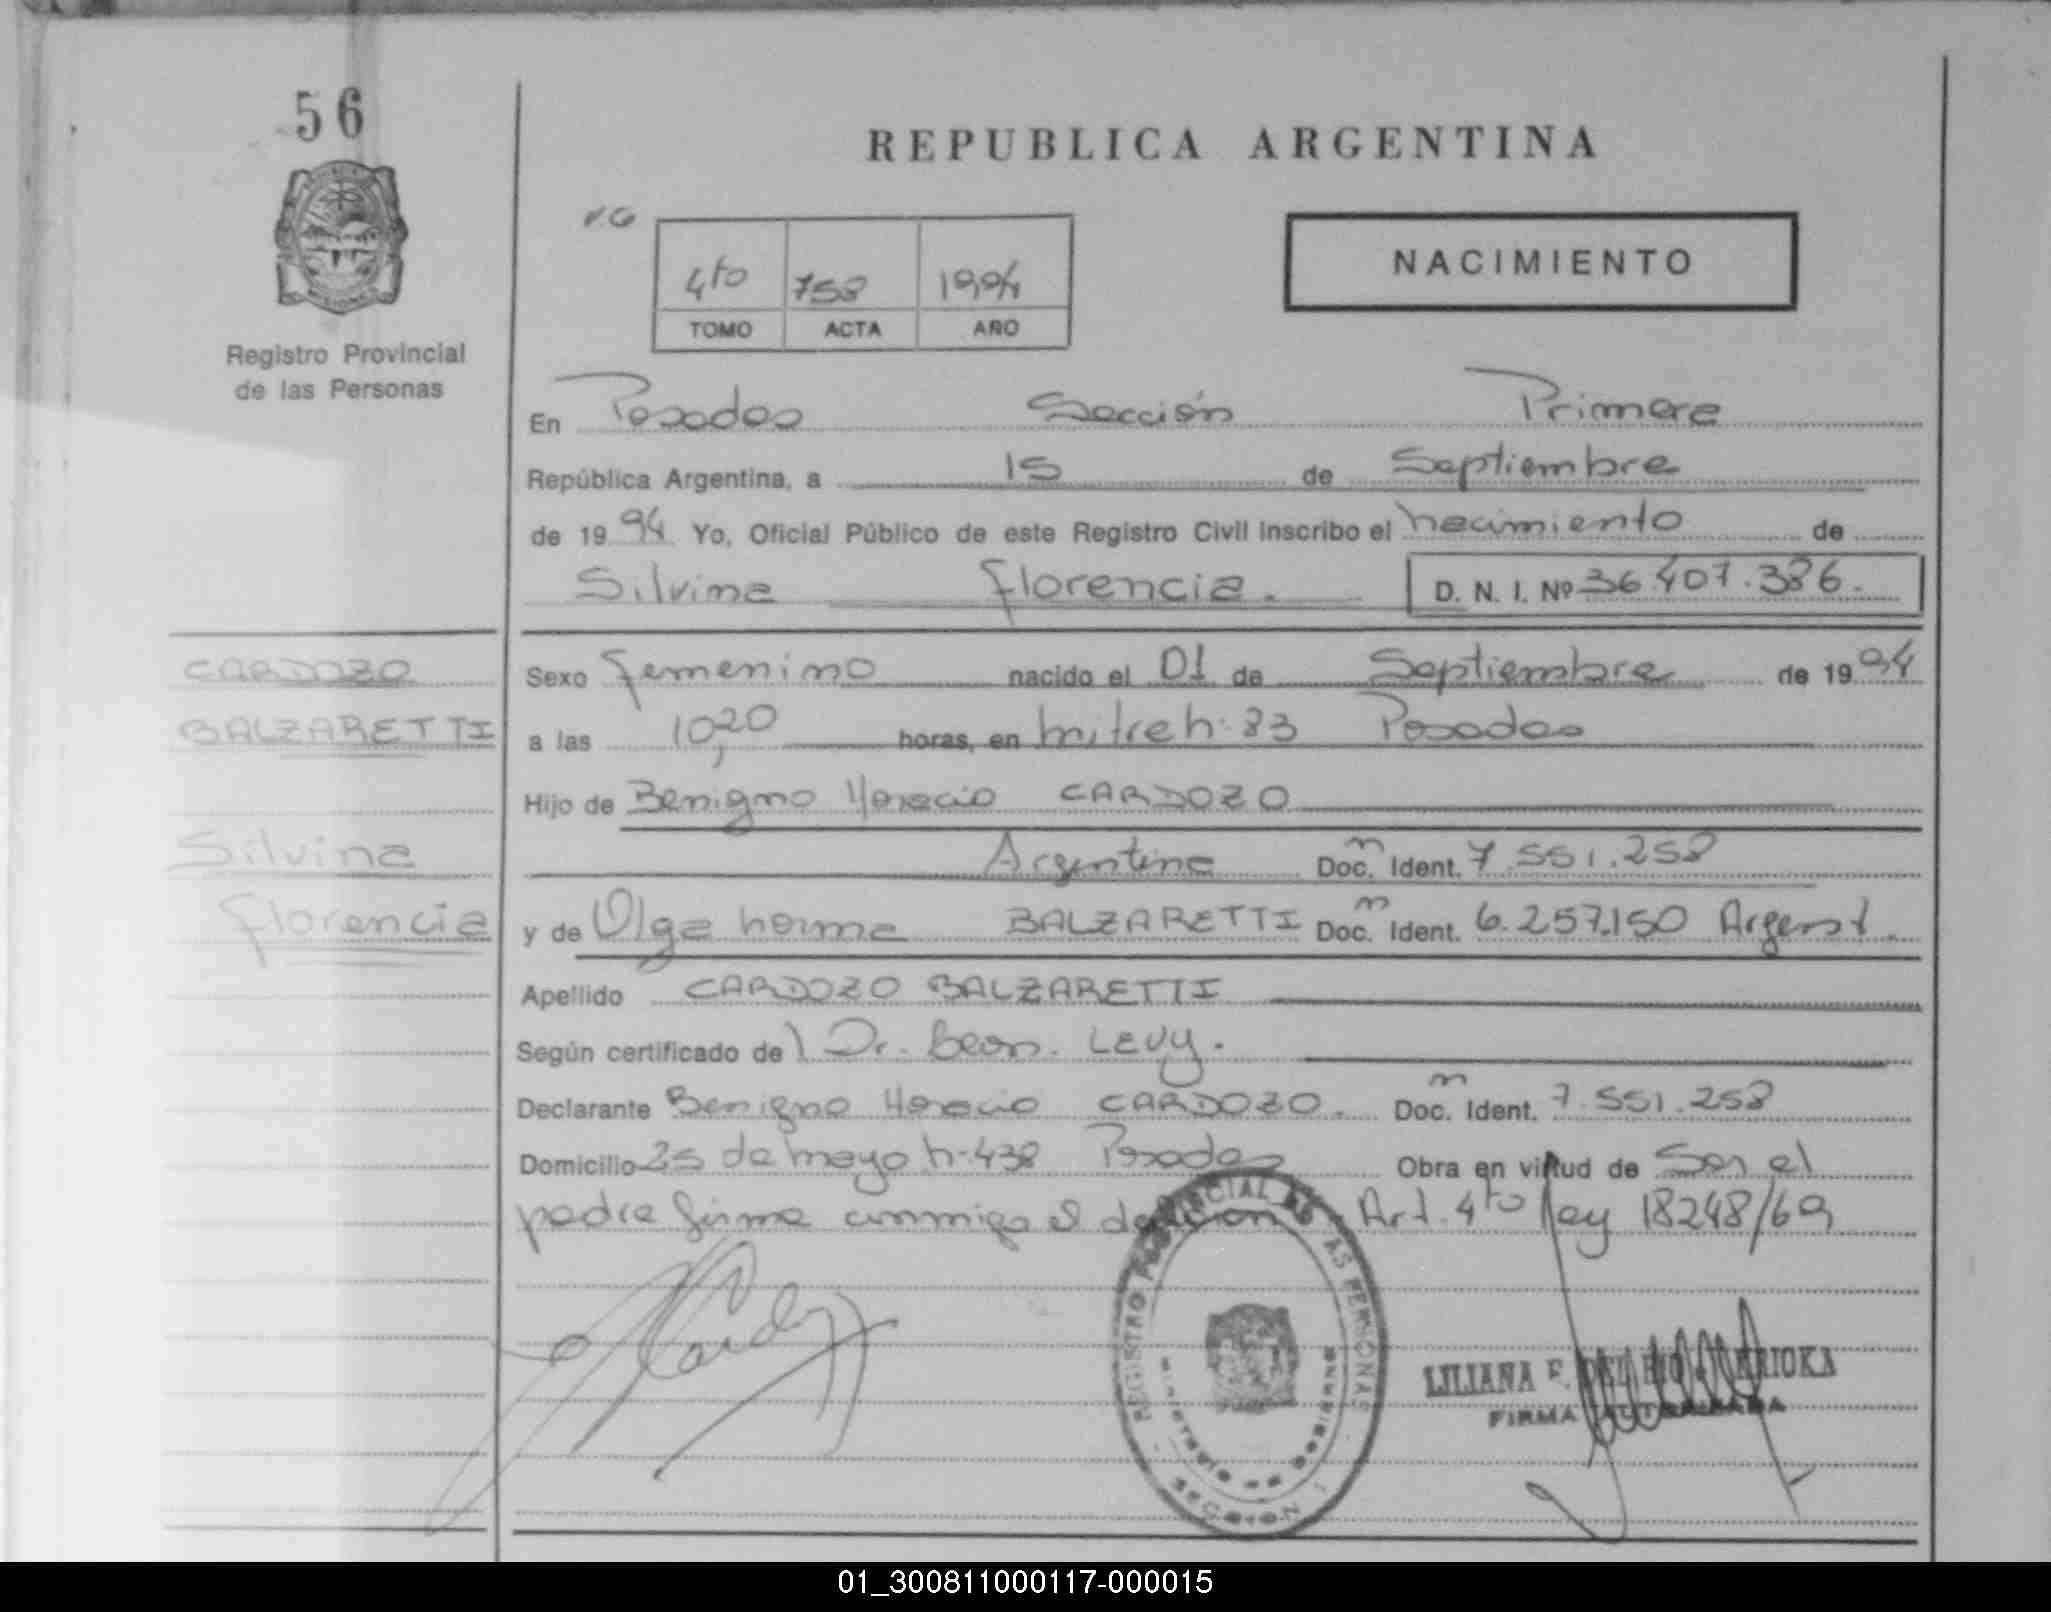 56
REPUBLICA ARGENTINA
V.G
4to 758 1994
TOMO ACTA AÑO
NACIMIENTO
MISIONES
Registro Provincial
de las Personas
En Posadas Sección Primera
República Argentina, a 15 de Septiembre
de 1994 Yo, Oficial Público de este Registro Civil inscribo el nacimiento de
Silvina Florencia. D. N. I. Nº 36.407.386.
CARDOZO
BALZARETTI
Silvina
Florencia
Sexo Femenino nacido el 01 de Septiembre de 1994
a las 10,20 horas, en Mitre N: 83 Posadas
Hijo de Benigno Horacio CARDOZO
Argentina Doc. m Ident. 7.551.258
y de Olga Norma BALZARETTI Doc. m Ident. 6.257.150 Argent.
Apellido CARDOZO BALZARETTI
Según certificado de Dr. Leon. LEVY.
Declarante Benigno Horacio CARDOZO. Doc. m Ident. 7.551.258
Domicilio 25 de Mayo N-438 Posadas Obra en virtud de Ser el
padre firma conmigo el Art. 4to Ley 18248/69
Cardozo
REGISTRO PROVINCIAL DE LAS PERSONAS
MINISTERIO DE GOBIERNO
SECCION 1
LILIANA F. DEL RIO
FIRMA AUTORIZADA
01_300811000117-000015